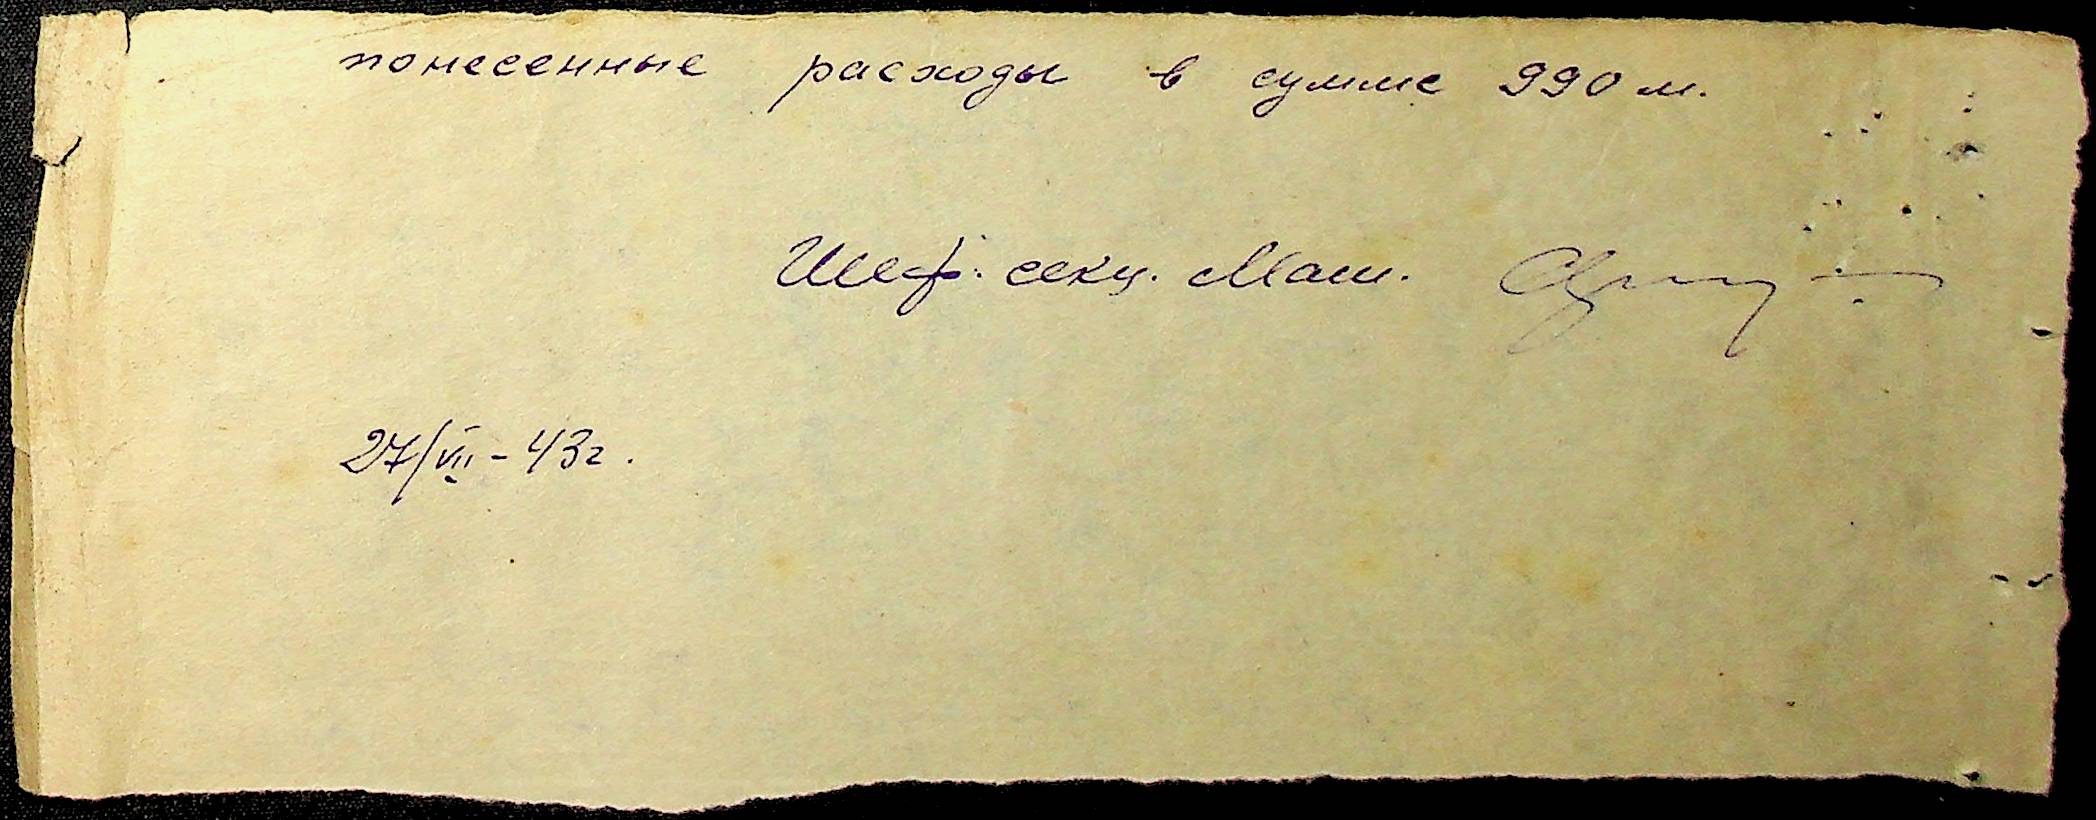 понесенные расходы в сумме 990 м.
Шеф. секц. Маш.
27/VII - 43г.